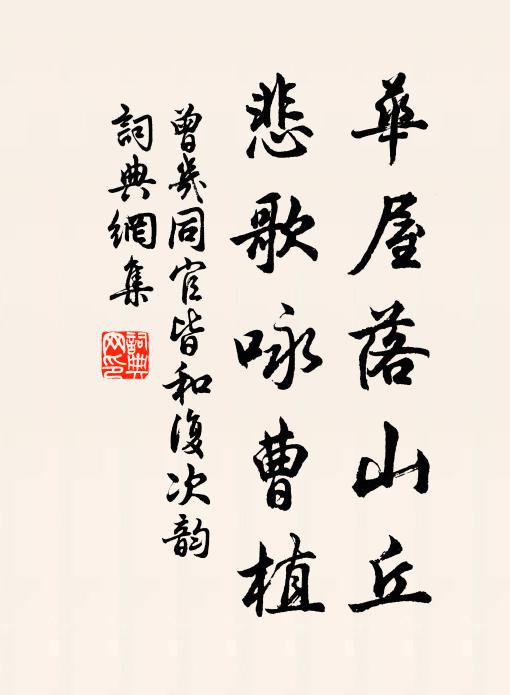 華屋落山丘
悲歌咏曹植
曾幾同官皆和復次韵
詞典網集
詞典網印